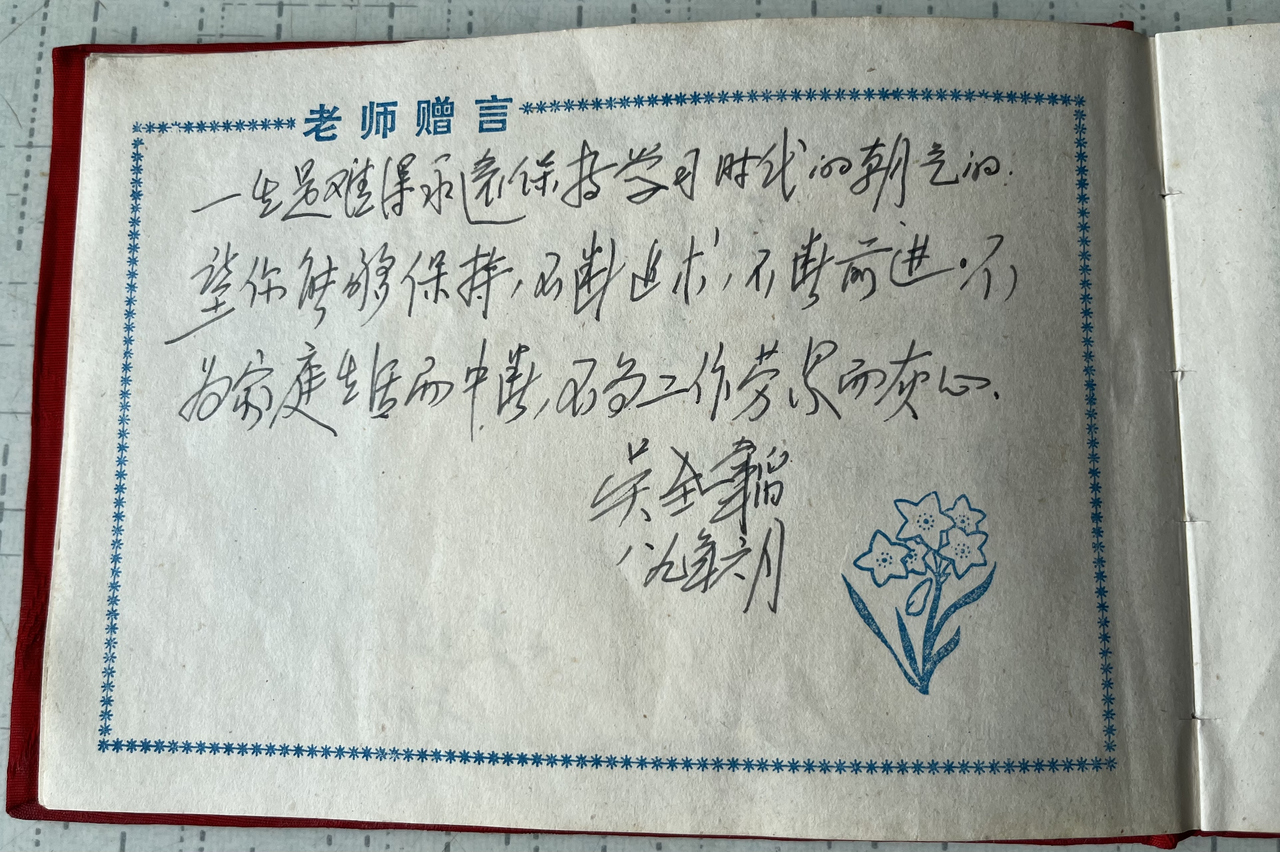 老师赠言
一生是难得永远保持学习时代的朝气的.
望你能够保持,不断追求,不断前进.不
为家庭生活而中断,不为工作劳累而灰心.
吴
八九年六月